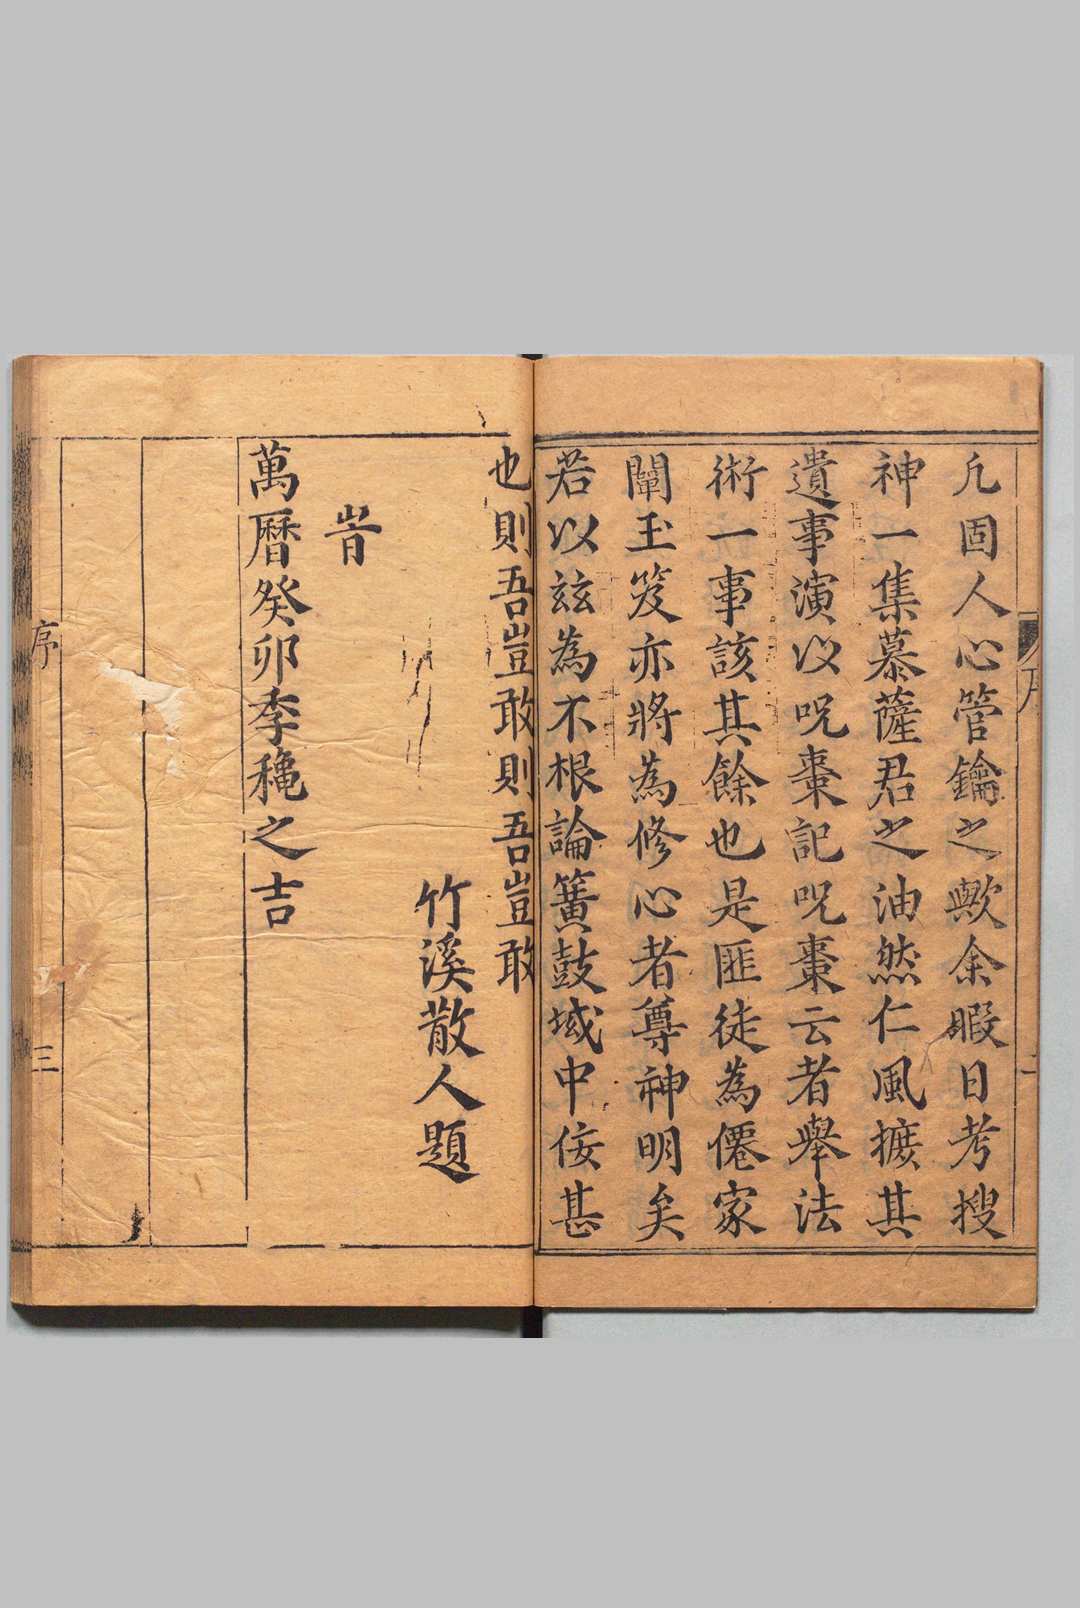 凡固人心管鑰之歟余暇日考搜
神一集慕薩君之油然仁風擴其
遺事演以呪棗記呪棗云者舉法
術一事該其餘也是匪徒為僊家
闡玉笈亦將為修心者尊神明矣
若以玆為不根論簧鼓域中侫甚
也則吾豈敢則吾豈敢
竹溪散人題
旹
萬曆癸卯季龝之吉
序
三